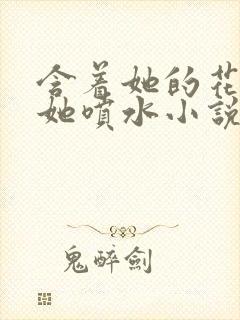 含着她的花
她噴水小說
鬼醉劍